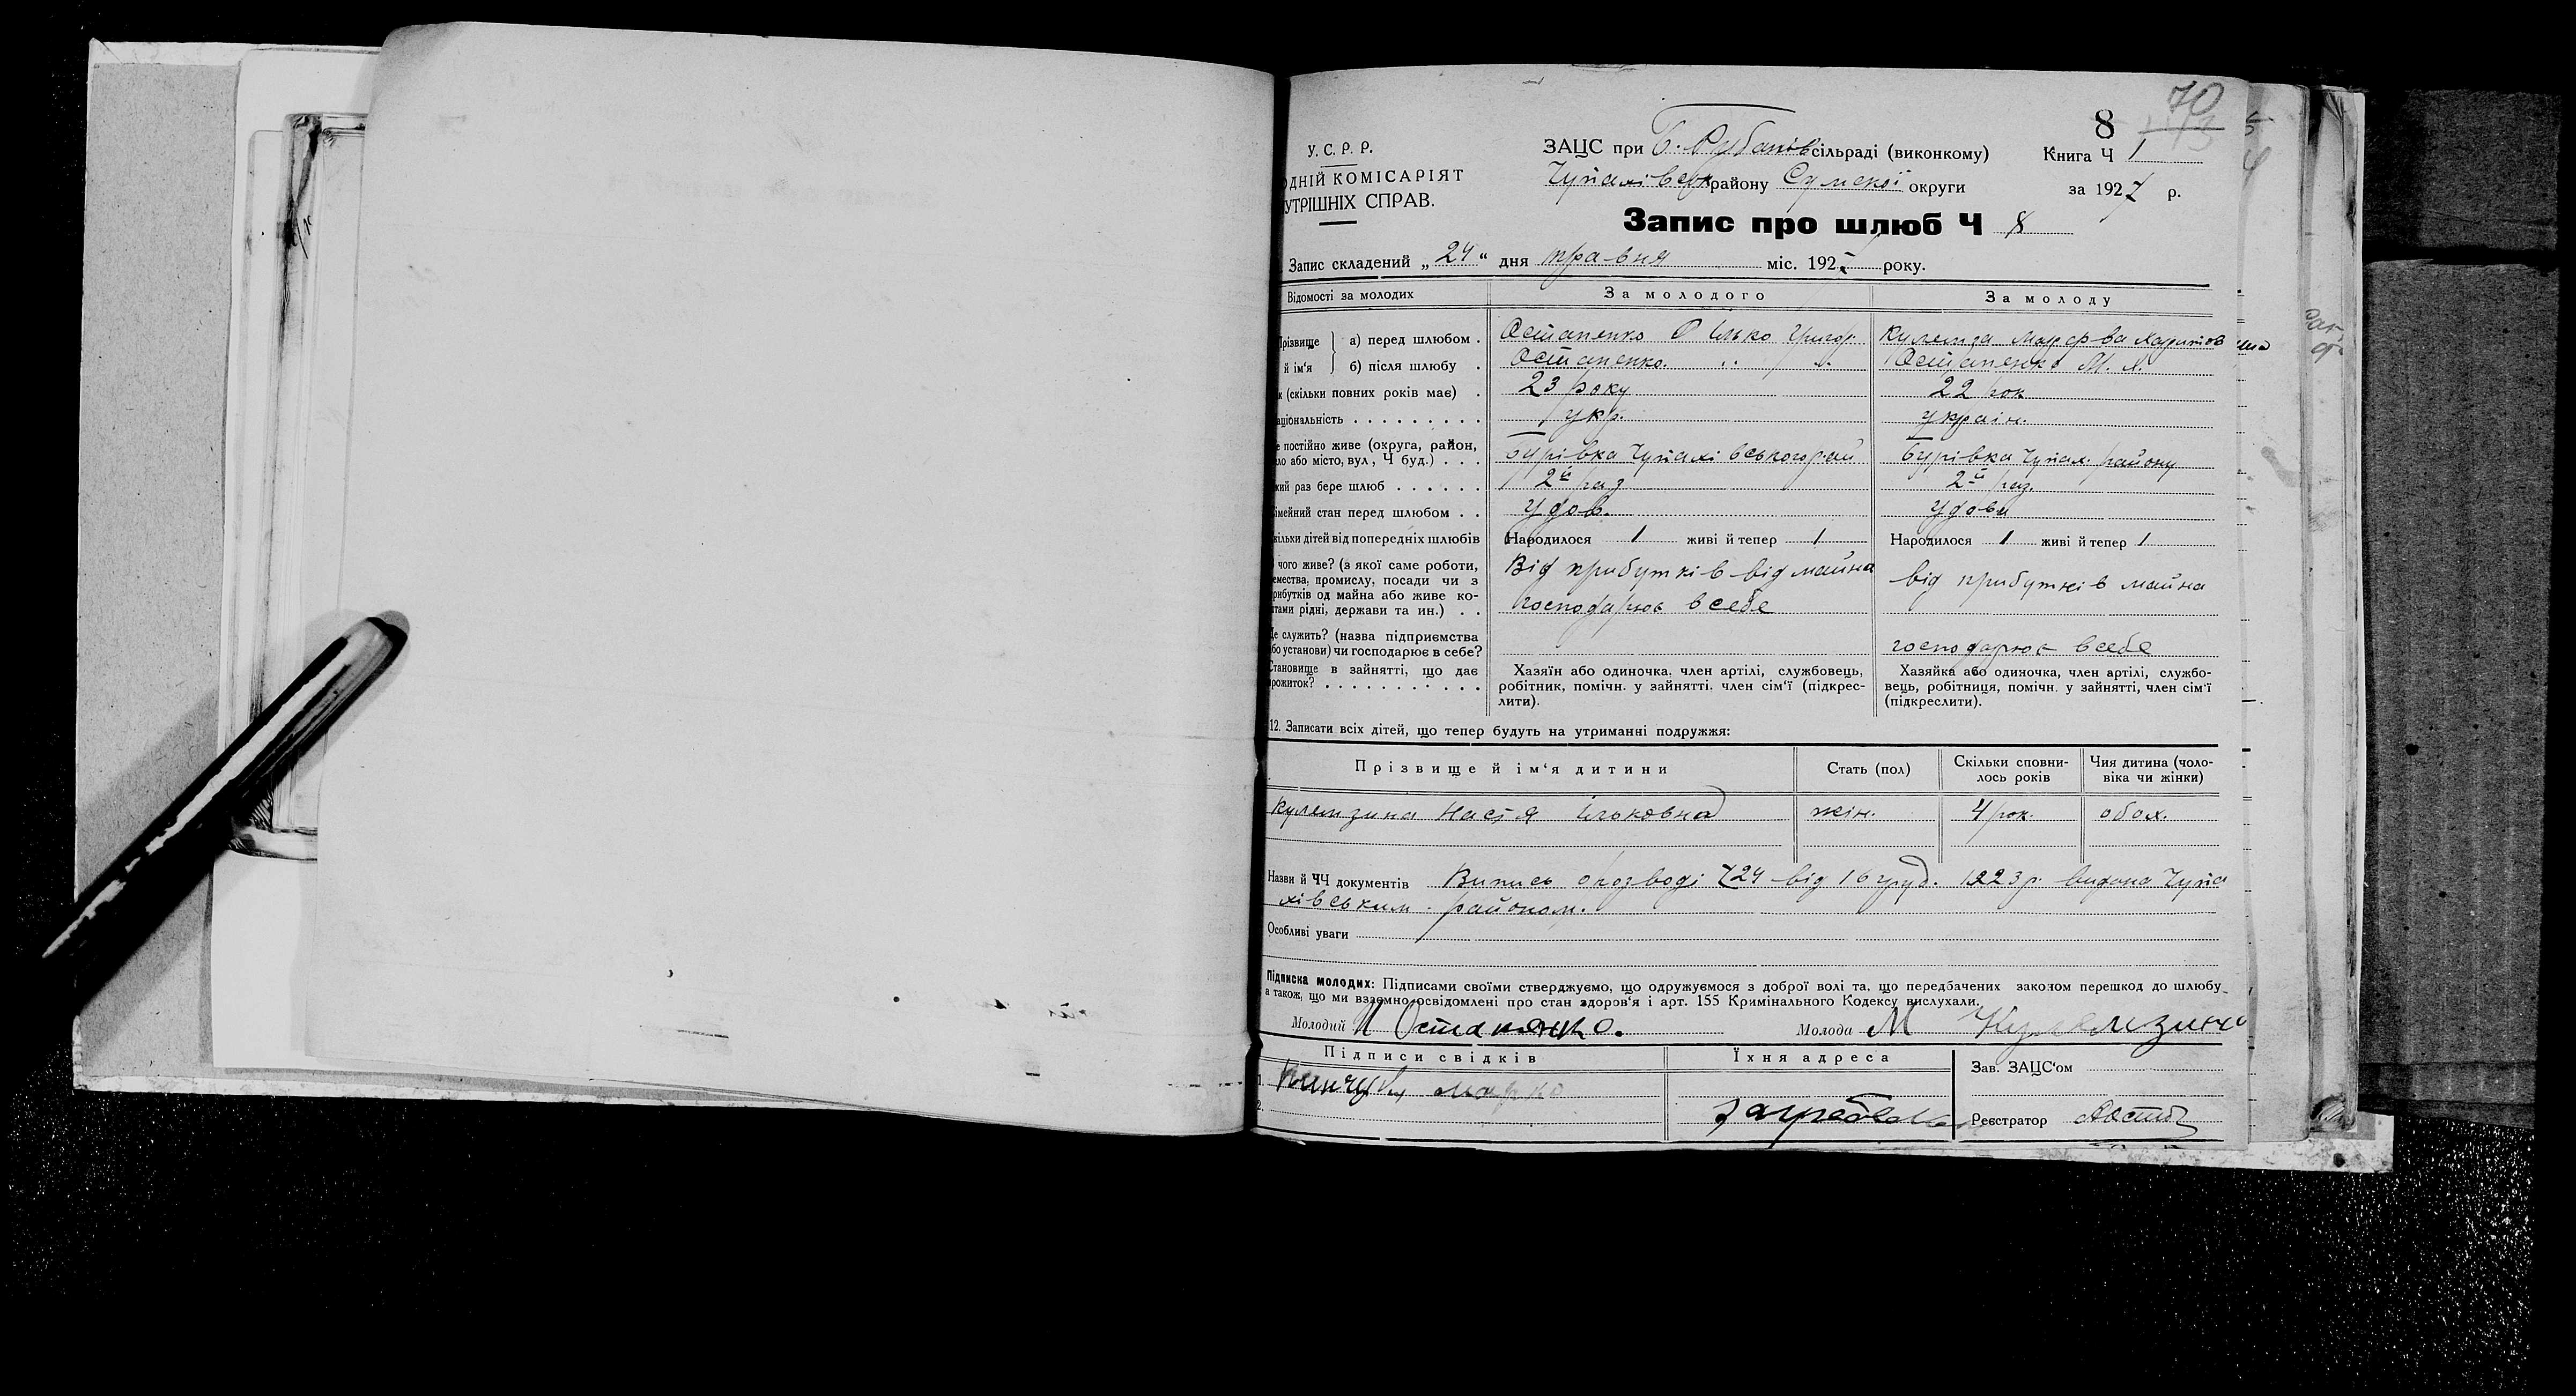 8 70
У. С. Р. Р.
ОДНІЙ КОМІСАРІЯТ
УТРІШНІХ СПРАВ.
ЗАЦС при Б. сільраді (виконкому)
Книга Ч 1
району Сумської округи
за 1927 р.
Запис про шлюб Ч 8
Запис складений „24“ дня травня міс. 1927 року.
Відомості за молодих
За молодого
За молоду
різвище й ім'я
а) перед шлюбом . Остапенко Ілько Григор. Кулемза
б) після шлюбу . Остапенко. Остапенко М.
к (скільки повних років має) . 23 року 22 рок
аціональність . . . . . . . . . укр. україн.
е постійно живе (округа, район,
ело або місто, вул, Ч буд.) . . . Бурівка Чупахівського рай Бурівка Чупах. району
кий раз бере шлюб . . . . . . 2й раз 2й раз.
імейний стан перед шлюбом . . удов. удова
кільки дітей від попередніх шлюбів Народилося 1 живі й тепер 1 Народилося 1 живі й тепер 1
чого живе? (з якої саме роботи,
емества, промислу, посади чи з
рибутків од майна або живе ко-
тами рідні, держави та ин.) . .
Від прибутків від майна
господарює в себе
від прибутків майна
Де служить? (назва підприємства
бо установи) чи господарює в себе?
господарює в себе
Становище в зайнятті, що дає
рожиток? . . . . . . . . . . . .
Хазяїн або одиночка, член артілі, службовець,
робітник, помічн. у зайнятті, член сім'ї (підкрес-
лити).
Хазяйка або одиночка, член артілі, службо-
вець, робітниця, помічн. у зайнятті, член сім'ї
(підкреслити).
12. Записати всіх дітей, що тепер будуть на утриманні подружжя:
Прізвище й ім'я дитини
Стать (пол)
Скільки сповни-
лось років
Чия дитина (чоло-
віка чи жінки)
Кулемзина Настя Ільковна жін. 4 рок. обох.
Назви й ЧЧ документів Випись о розводі 724 від 16 груд. 1923 р. видана Чупа
хівським районом.
Особливі уваги
Підписка молодих: Підписами своїми стверджуємо, що одружуємося з доброї волі та, що передбачених законом перешкод до шлюбу
а також, що ми взаємно освідомлені про стан здоров'я і арт. 155 Кримінального Кодексу вислухали.
Молодий И Остапенко. Молода М Кулемзина
Підписи свідків
Їхня адреса
Зав. ЗАЦС'ом
1. Марко
2.
Реєстратор